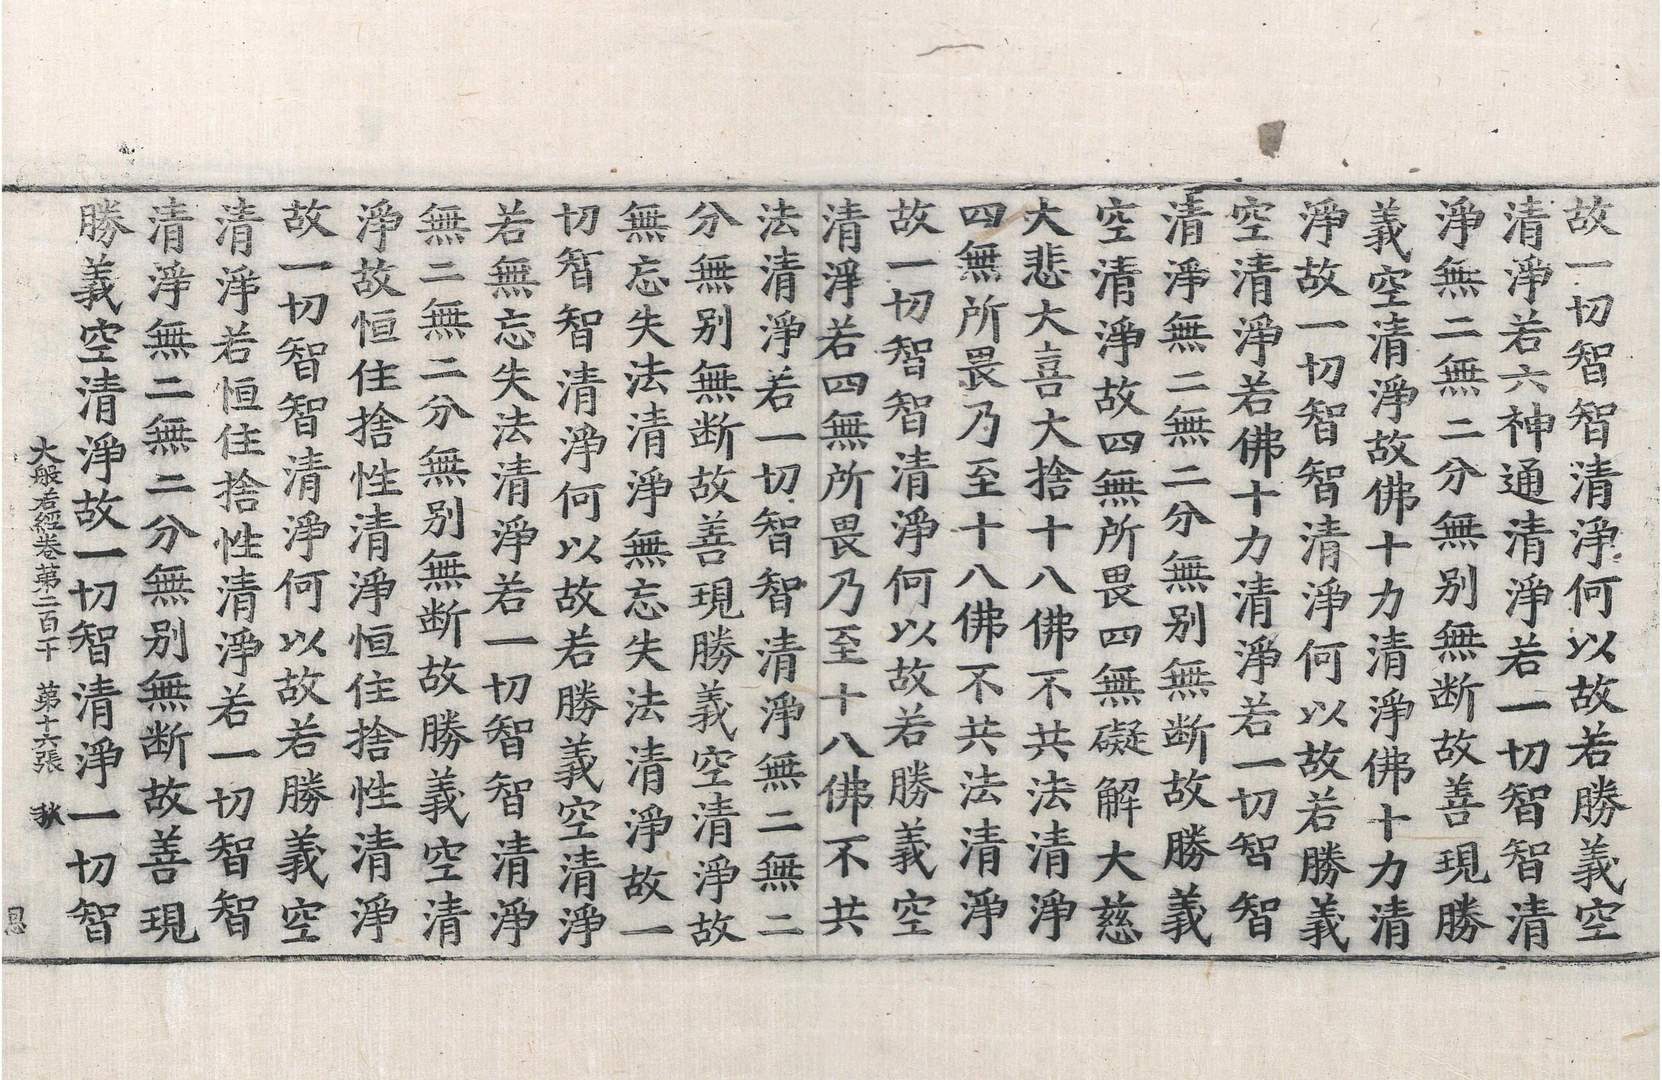 故一切智智清淨何以故若勝義空
清淨若六神通清淨若一切智智清
淨無二無二分無别無断故善現勝
義空清淨故佛十力清淨佛十力清
淨故一切智智清淨何以故若勝義
空清淨若佛十力清淨若一切智智
清淨無二無二分無别無断故勝義
空清淨故四無所畏四無礙解大慈
大悲大喜大捨十八佛不共法清淨
四無所畏乃至十八佛不共法清淨
故一切智智清淨何以故若勝義空
清淨若四無所畏乃至十八佛不共
法清淨若一切智智清淨無二無二
分無别無断故善現勝義空清淨故
無忘失法清淨無忘失法清淨故一
切智智清淨何以故若勝義空清淨
若無忘失法清淨若一切智智清淨
無二無二分無别無断故勝義空清
淨故恒住捨性清淨恒住捨性清淨
故一切智智清淨何以故若勝義空
清淨若恒住捨性清淨若一切智智
清淨無二無二分無别無断故善現
勝義空清淨故一切智智清淨一切智
大般若經卷第二百十 第十六張 秋